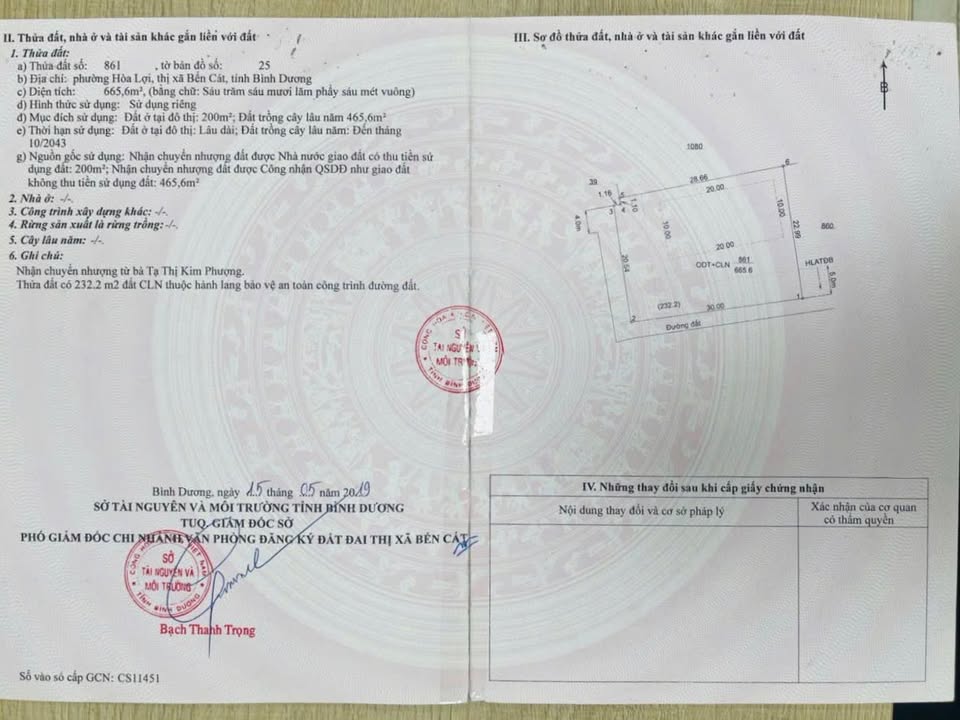 II. Thửa đất, nhà ở và tài sản khác gắn liền với đất
1. Thửa đất:
a) Thửa đất số: 861 , tờ bản đồ số: 25
b) Địa chỉ: phường Hòa Lợi, thị xã Bến Cát, tỉnh Bình Dương
c) Diện tích: 665,6m², (bằng chữ: Sáu trăm sáu mươi lăm phẩy sáu mét vuông)
d) Hình thức sử dụng: Sử dụng riêng
đ) Mục đích sử dụng: Đất ở tại đô thị: 200m²; Đất trồng cây lâu năm 465,6m²
e) Thời hạn sử dụng: Đất ở tại đô thị: Lâu dài; Đất trồng cây lâu năm: Đến tháng
10/2043
g) Nguồn gốc sử dụng: Nhận chuyển nhượng đất được Nhà nước giao đất có thu tiền sử
dụng đất: 200m²; Nhận chuyển nhượng đất được Công nhận QSDĐ như giao đất
không thu tiền sử dụng đất: 465,6m²
2. Nhà ở: -/-.
3. Công trình xây dựng khác: -/-.
4. Rừng sản xuất là rừng trồng: -/-.
5. Cây lâu năm: -/-.
6. Ghi chú:
Nhận chuyển nhượng từ bà Tạ Thị Kim Phượng.
Thửa đất có 232.2 m2 đất CLN thuộc hành lang bảo vệ an toàn công trình đường đất.
Bình Dương, ngày 15 tháng 05 năm 2019
SỞ TÀI NGUYÊN VÀ MÔI TRƯỜNG TỈNH BÌNH DƯƠNG
TUQ. GIÁM ĐỐC SỞ
PHÓ GIÁM ĐỐC CHI NHÁNH VĂN PHÒNG ĐĂNG KÝ ĐẤT ĐAI THỊ XÃ BẾN CÁT
SỞ
TÀI NGUYÊN VÀ
MÔI TRƯỜNG
TỈNH BÌNH DƯƠNG
Bạch Thanh Trọng
Số vào sổ cấp GCN: CS11451
III. Sơ đồ thửa đất, nhà ở và tài sản khác gắn liền với đất
B
1080
6
28.66
20.00
39
1.16
5
1.10
3
4
4.0m
10.00
10.00
22.99
860
20.54
20.00
ODT+CLN 861
665.6
HLATĐB
5.0m
(232.2)
30.00
1
2
Đường đất
SỞ
TÀI NGUYÊN V
MÔI TRƯỜ
TỈNH BÌNH DƯƠ
IV. Những thay đổi sau khi cấp giấy chứng nhận
Nội dung thay đổi và cơ sở pháp lý
Xác nhận của cơ quan
có thẩm quyền